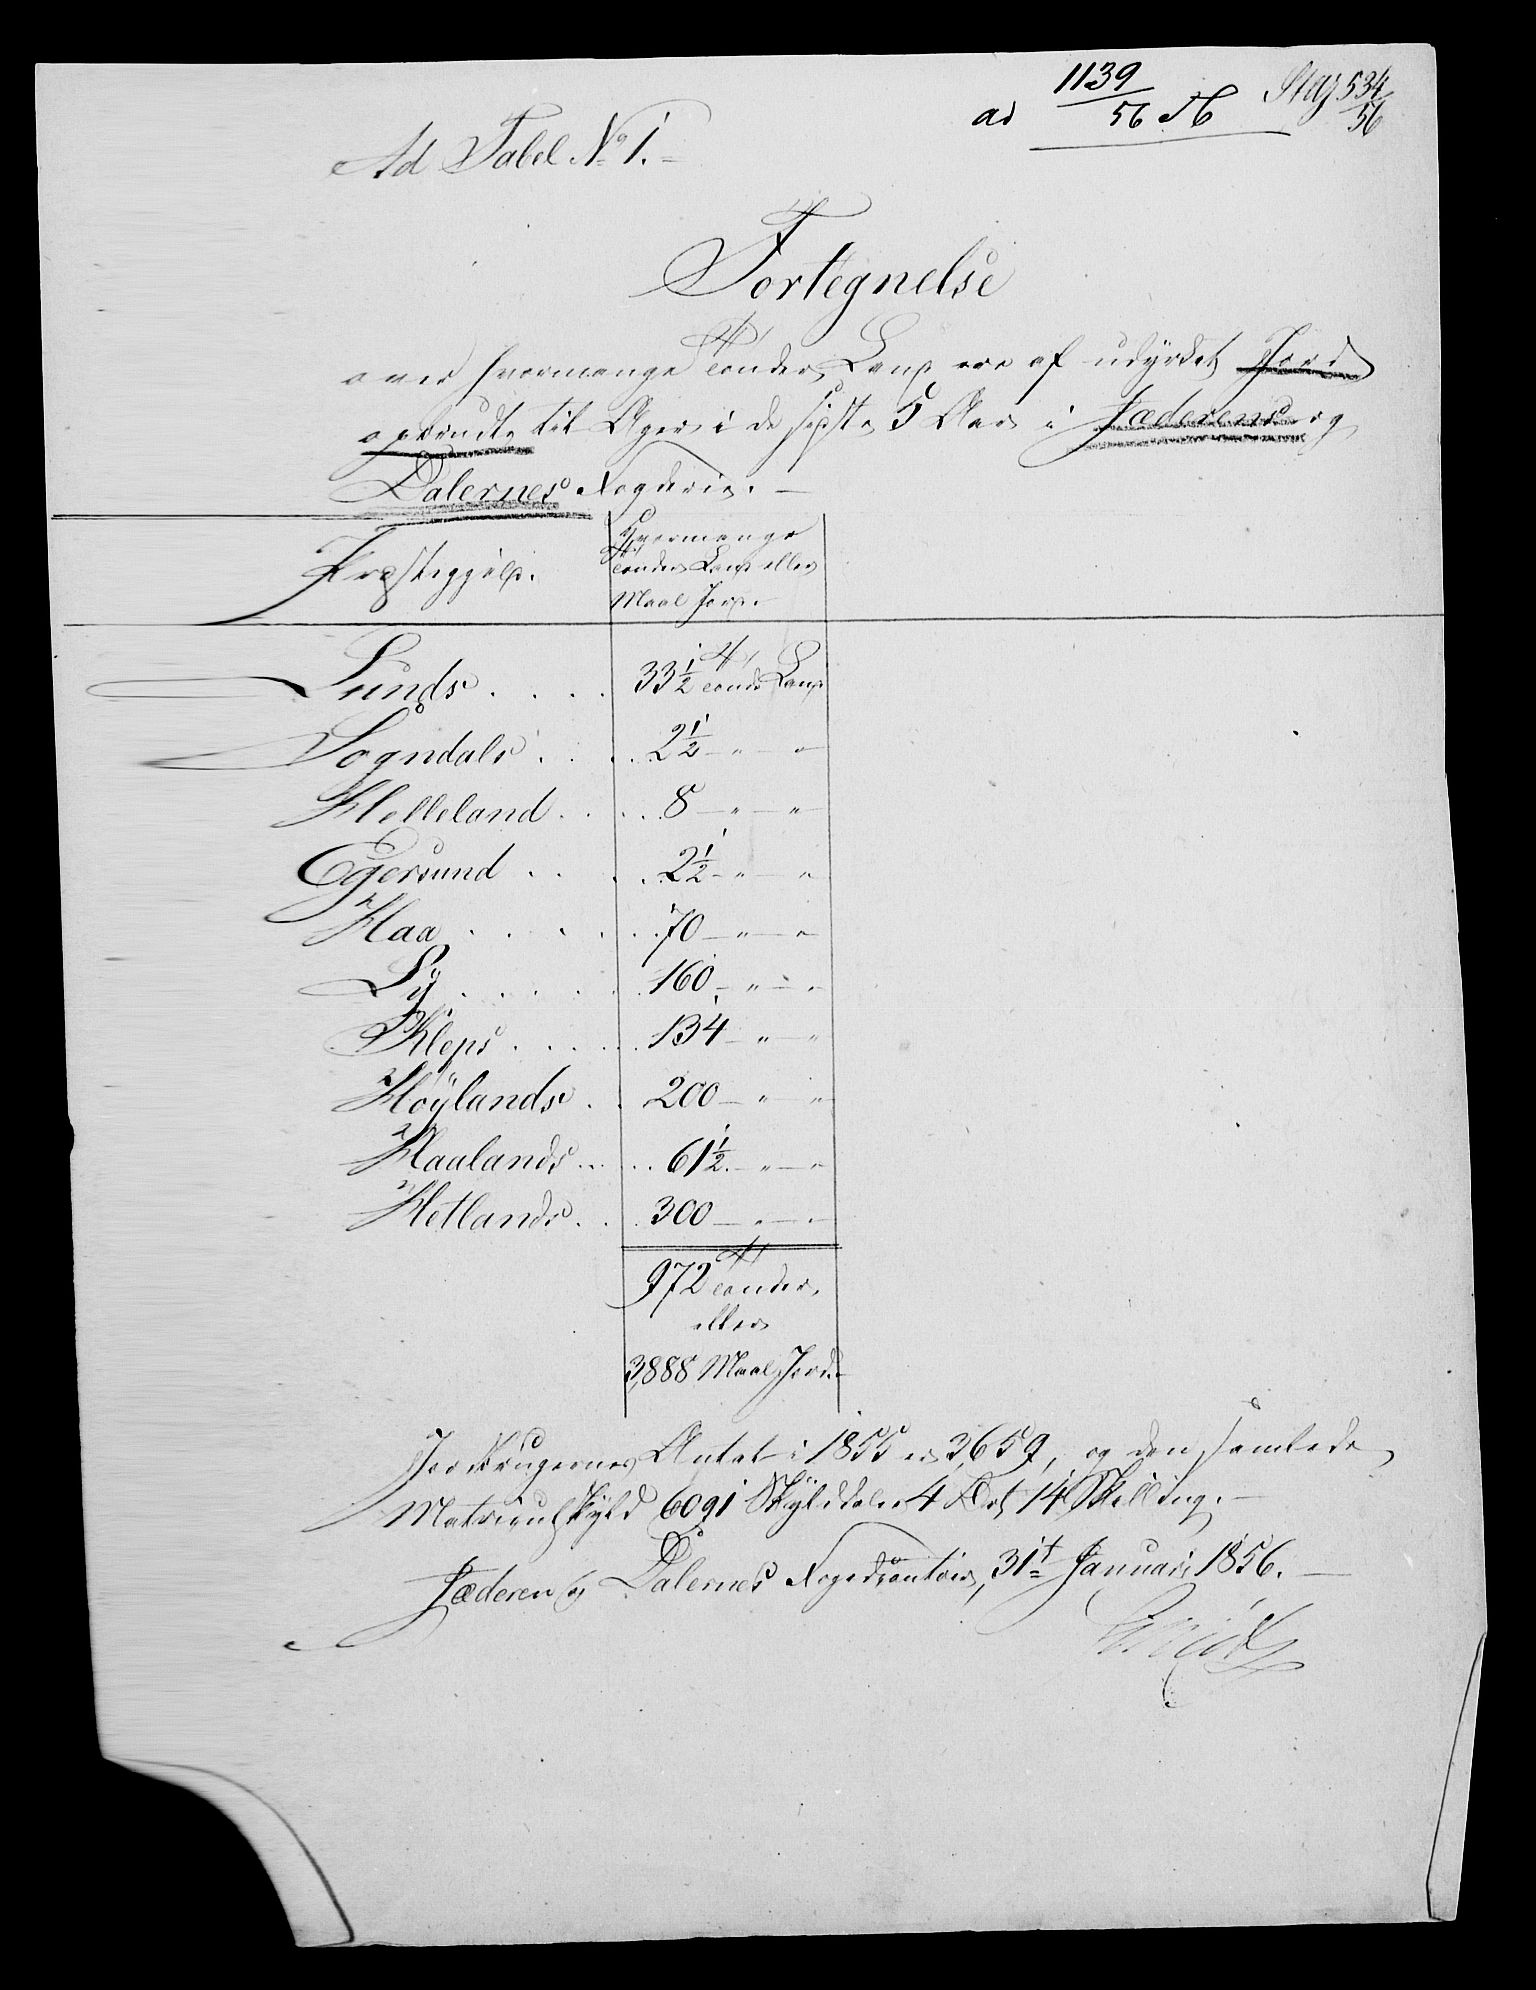 ad 1139/56
534/56
Ad Tabel No 1.
Fortegnelse
over hvormange Tønder Land ere af udyrket Jord
opbrudte til Ager i de sidste 5 Aar i Jæderens og
Dalernes Fogderie.
Præstegjeld. Hvormange
Tønder Land eller
Maal Jord.
Lunds . . . . 33 1/2 Tønder Land
Sogndals . . . . 2 1/2 - " - "
Helleland . . . . . 8 - " - "
Egersund . . . . . 2 1/2 - " - "
Haa . . . . . . 70 - " - "
Ly . . . . . . 160 - " - "
Kleps . . . . . 134 - " - "
Höÿlands . . 200 - " - "
Haalands . . . . . 61 1/2 - " - "
Hetlands . . . 300 - " - "
972 Tønder
eller
3,888 Maal Jord.
Jordbrugernes Antal i 1855 er 3,659, og den samlede
Matriculskyld 6091 Skylddaler 4 Ort 14 Skilling.
Jæderen og Dalernes Fogedcontoir, 31t Januar 1856.